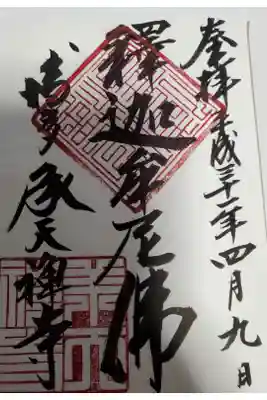 奉拝平成三十一年四月九日
釋迦牟尼佛
博多承天禅寺